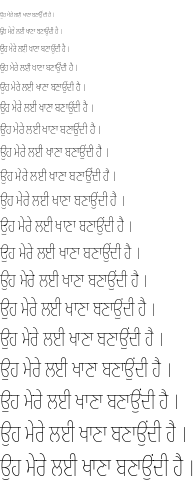 ਉਹ ਮੇਰੇ ਲਈ ਖਾਣਾ ਬਣਾਉਂਦੀ ਹੈ ।
ਉਹ ਮੇਰੇ ਲਈ ਖਾਣਾ ਬਣਾਉਂਦੀ ਹੈ ।
ਉਹ ਮੇਰੇ ਲਈ ਖਾਣਾ ਬਣਾਉਂਦੀ ਹੈ ।
ਉਹ ਮੇਰੇ ਲਈ ਖਾਣਾ ਬਣਾਉਂਦੀ ਹੈ ।
ਉਹ ਮੇਰੇ ਲਈ ਖਾਣਾ ਬਣਾਉਂਦੀ ਹੈ ।
ਉਹ ਮੇਰੇ ਲਈ ਖਾਣਾ ਬਣਾਉਂਦੀ ਹੈ ।
ਉਹ ਮੇਰੇ ਲਈ ਖਾਣਾ ਬਣਾਉਂਦੀ ਹੈ ।
ਉਹ ਮੇਰੇ ਲਈ ਖਾਣਾ ਬਣਾਉਂਦੀ ਹੈ ।
ਉਹ ਮੇਰੇ ਲਈ ਖਾਣਾ ਬਣਾਉਂਦੀ ਹੈ ।
ਉਹ ਮੇਰੇ ਲਈ ਖਾਣਾ ਬਣਾਉਂਦੀ ਹੈ ।
ਉਹ ਮੇਰੇ ਲਈ ਖਾਣਾ ਬਣਾਉਂਦੀ ਹੈ ।
ਉਹ ਮੇਰੇ ਲਈ ਖਾਣਾ ਬਣਾਉਂਦੀ ਹੈ ।
ਉਹ ਮੇਰੇ ਲਈ ਖਾਣਾ ਬਣਾਉਂਦੀ ਹੈ ।
ਉਹ ਮੇਰੇ ਲਈ ਖਾਣਾ ਬਣਾਉਂਦੀ ਹੈ ।
ਉਹ ਮੇਰੇ ਲਈ ਖਾਣਾ ਬਣਾਉਂਦੀ ਹੈ ।
ਉਹ ਮੇਰੇ ਲਈ ਖਾਣਾ ਬਣਾਉਂਦੀ ਹੈ ।
ਉਹ ਮੇਰੇ ਲਈ ਖਾਣਾ ਬਣਾਉਂਦੀ ਹੈ ।
ਉਹ ਮੇਰੇ ਲਈ ਖਾਣਾ ਬਣਾਉਂਦੀ ਹੈ ।
ਉਹ ਮੇਰੇ ਲਈ ਖਾਣਾ ਬਣਾਉਂਦੀ ਹੈ ।